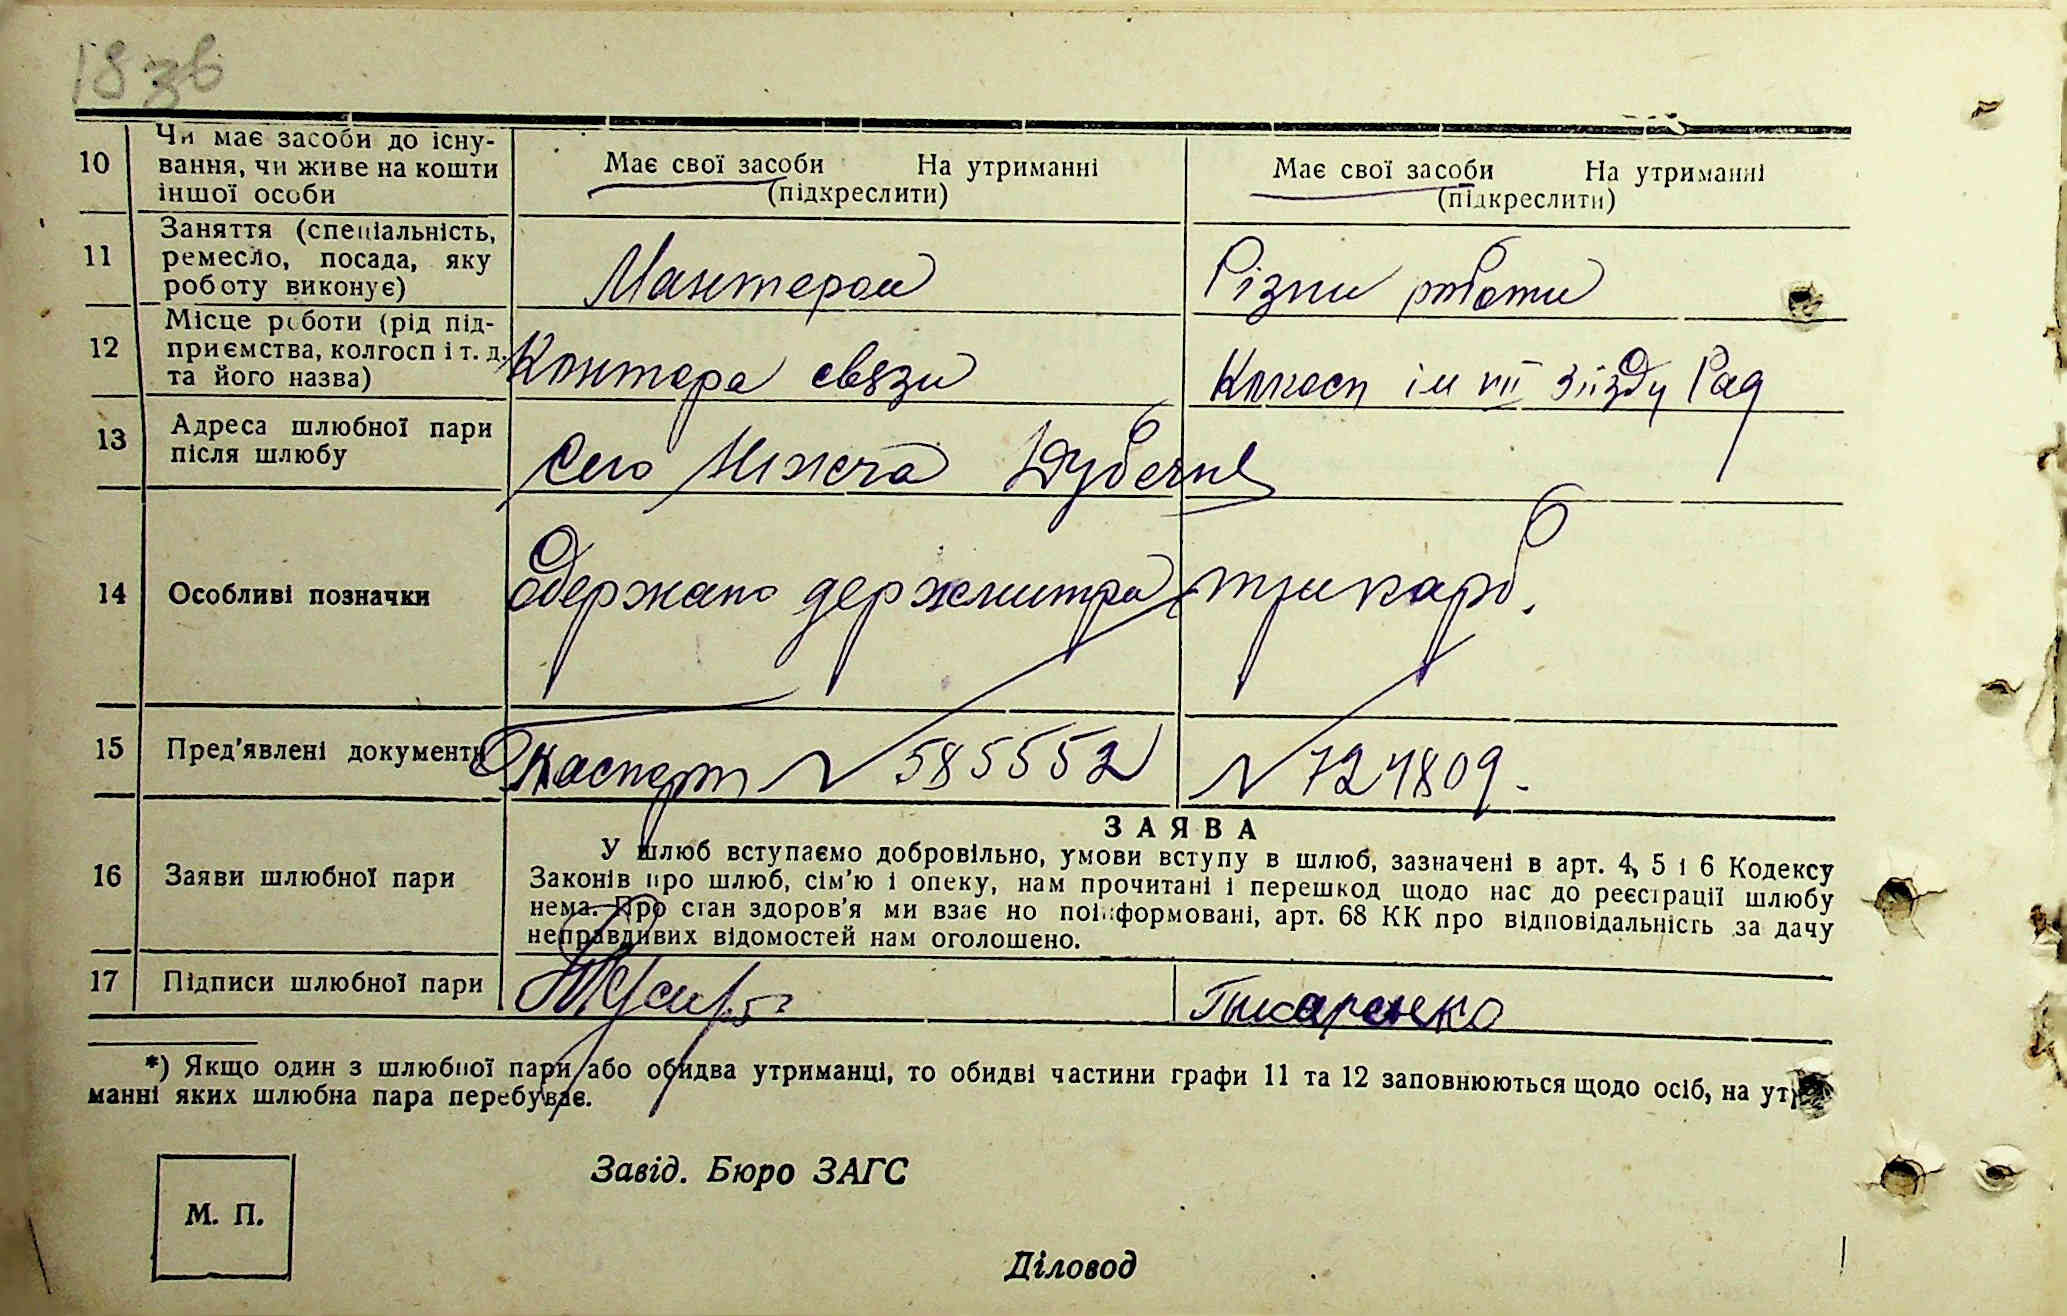 18 зв
10 Чи має засоби до існу-
вання, чи живе на кошти
іншої особи
Має свої засоби На утриманні
(підкреслити)
Має свої засоби На утриманні
(підкреслити)
11 Заняття (спеціальність,
ремесло, посада, яку
роботу виконує)
Мантером
Різни роботи
12 Місце роботи (рід під-
приємства, колгосп і т. д.
та його назва)
Контора связи
Колгосп ім VII зїізду Рад
13 Адреса шлюбної пари
після шлюбу
Село Нижча Дубечня
14 Особливі позначки
Одержано держмита три карб.
15 Пред'явлені документи
Паспорт № 585552
№ 724809.
16 Заяви шлюбної пари
ЗАЯВА
У шлюб вступаємо добровільно, умови вступу в шлюб, зазначені в арт. 4, 5 і 6 Кодексу
Законів про шлюб, сім'ю і опеку, нам прочитані і перешкод щодо нас до реєстрації шлюбу
нема. Про стан здоров'я ми взає но поінформовані, арт. 68 КК про відповідальність за дачу
неправдивих відомостей нам оголошено.
17 Підписи шлюбної пари
Писаренко
*) Якщо один з шлюбної пари або обидва утриманці, то обидві частини графи 11 та 12 заповнюються щодо осіб, на утри
манні яких шлюбна пара перебуває.
Завід. Бюро ЗАГС
М. П.
Діловод